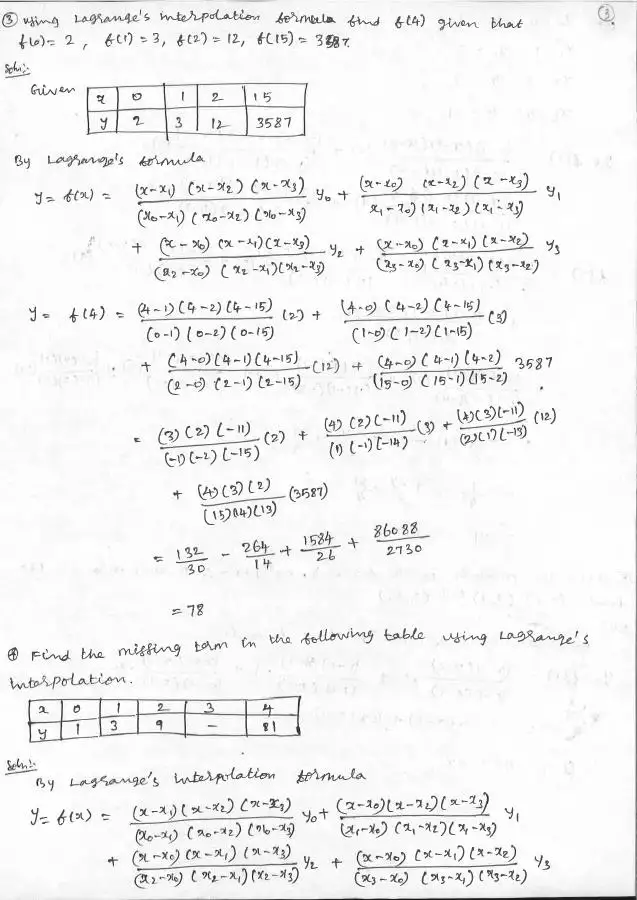 ③
③ Using Lagrange's interpolation formula find f(4) given that
f(0) = 2, f(1) = 3, f(2) = 12, f(15) = 3587.
Soln:-
Given
x 0 1 2 15
y 2 3 12 3587
By Lagrange's formula
y = f(x) = (x-x1)(x-x2)(x-x3)/(x0-x1)(x0-x2)(x0-x3) y0 + (x-x0)(x-x2)(x-x3)/x1-x0)(x1-x2)(x1-x3) y1
+ (x-x0)(x-x1)(x-x3)/(x2-x0)(x2-x1)(x2-x3) y2 + (x-x0)(x-x1)(x-x2)/(x3-x0)(x3-x1)(x3-x2) y3
y = f(4) = (4-1)(4-2)(4-15)/(0-1)(0-2)(0-15) (2) + (4-0)(4-2)(4-15)/(1-0)(1-2)(1-15) (3)
+ (4-0)(4-1)(4-15)/(2-0)(2-1)(2-15) (12) + (4-0)(4-1)(4-2)/(15-0)(15-1)(15-2) 3587
= (3)(2)(-11)/(-1)(-2)(-15) (2) + (4)(2)(-11)/(1)(-1)(-14) (3) + (4)(3)(-11)/(2)(1)(-13) (12)
+ (4)(3)(2)/(15)(14)(13) (3587)
= 132/30 - 264/14 + 1584/26 + 86088/2730
= 78
④ Find the missing term in the following table using Lagrange's
interpolation.
x 0 1 2 3 4
y 1 3 9 - 81
Soln:-
By Lagrange's interpolation formula
y = f(x) = (x-x1)(x-x2)(x-x3)/(x0-x1)(x0-x2)(x0-x3) y0 + (x-x0)(x-x2)(x-x3)/(x1-x0)(x1-x2)(x1-x3) y1
+ (x-x0)(x-x1)(x-x3)/(x2-x0)(x2-x1)(x2-x3) y2 + (x-x0)(x-x1)(x-x2)/(x3-x0)(x3-x1)(x3-x2) y3